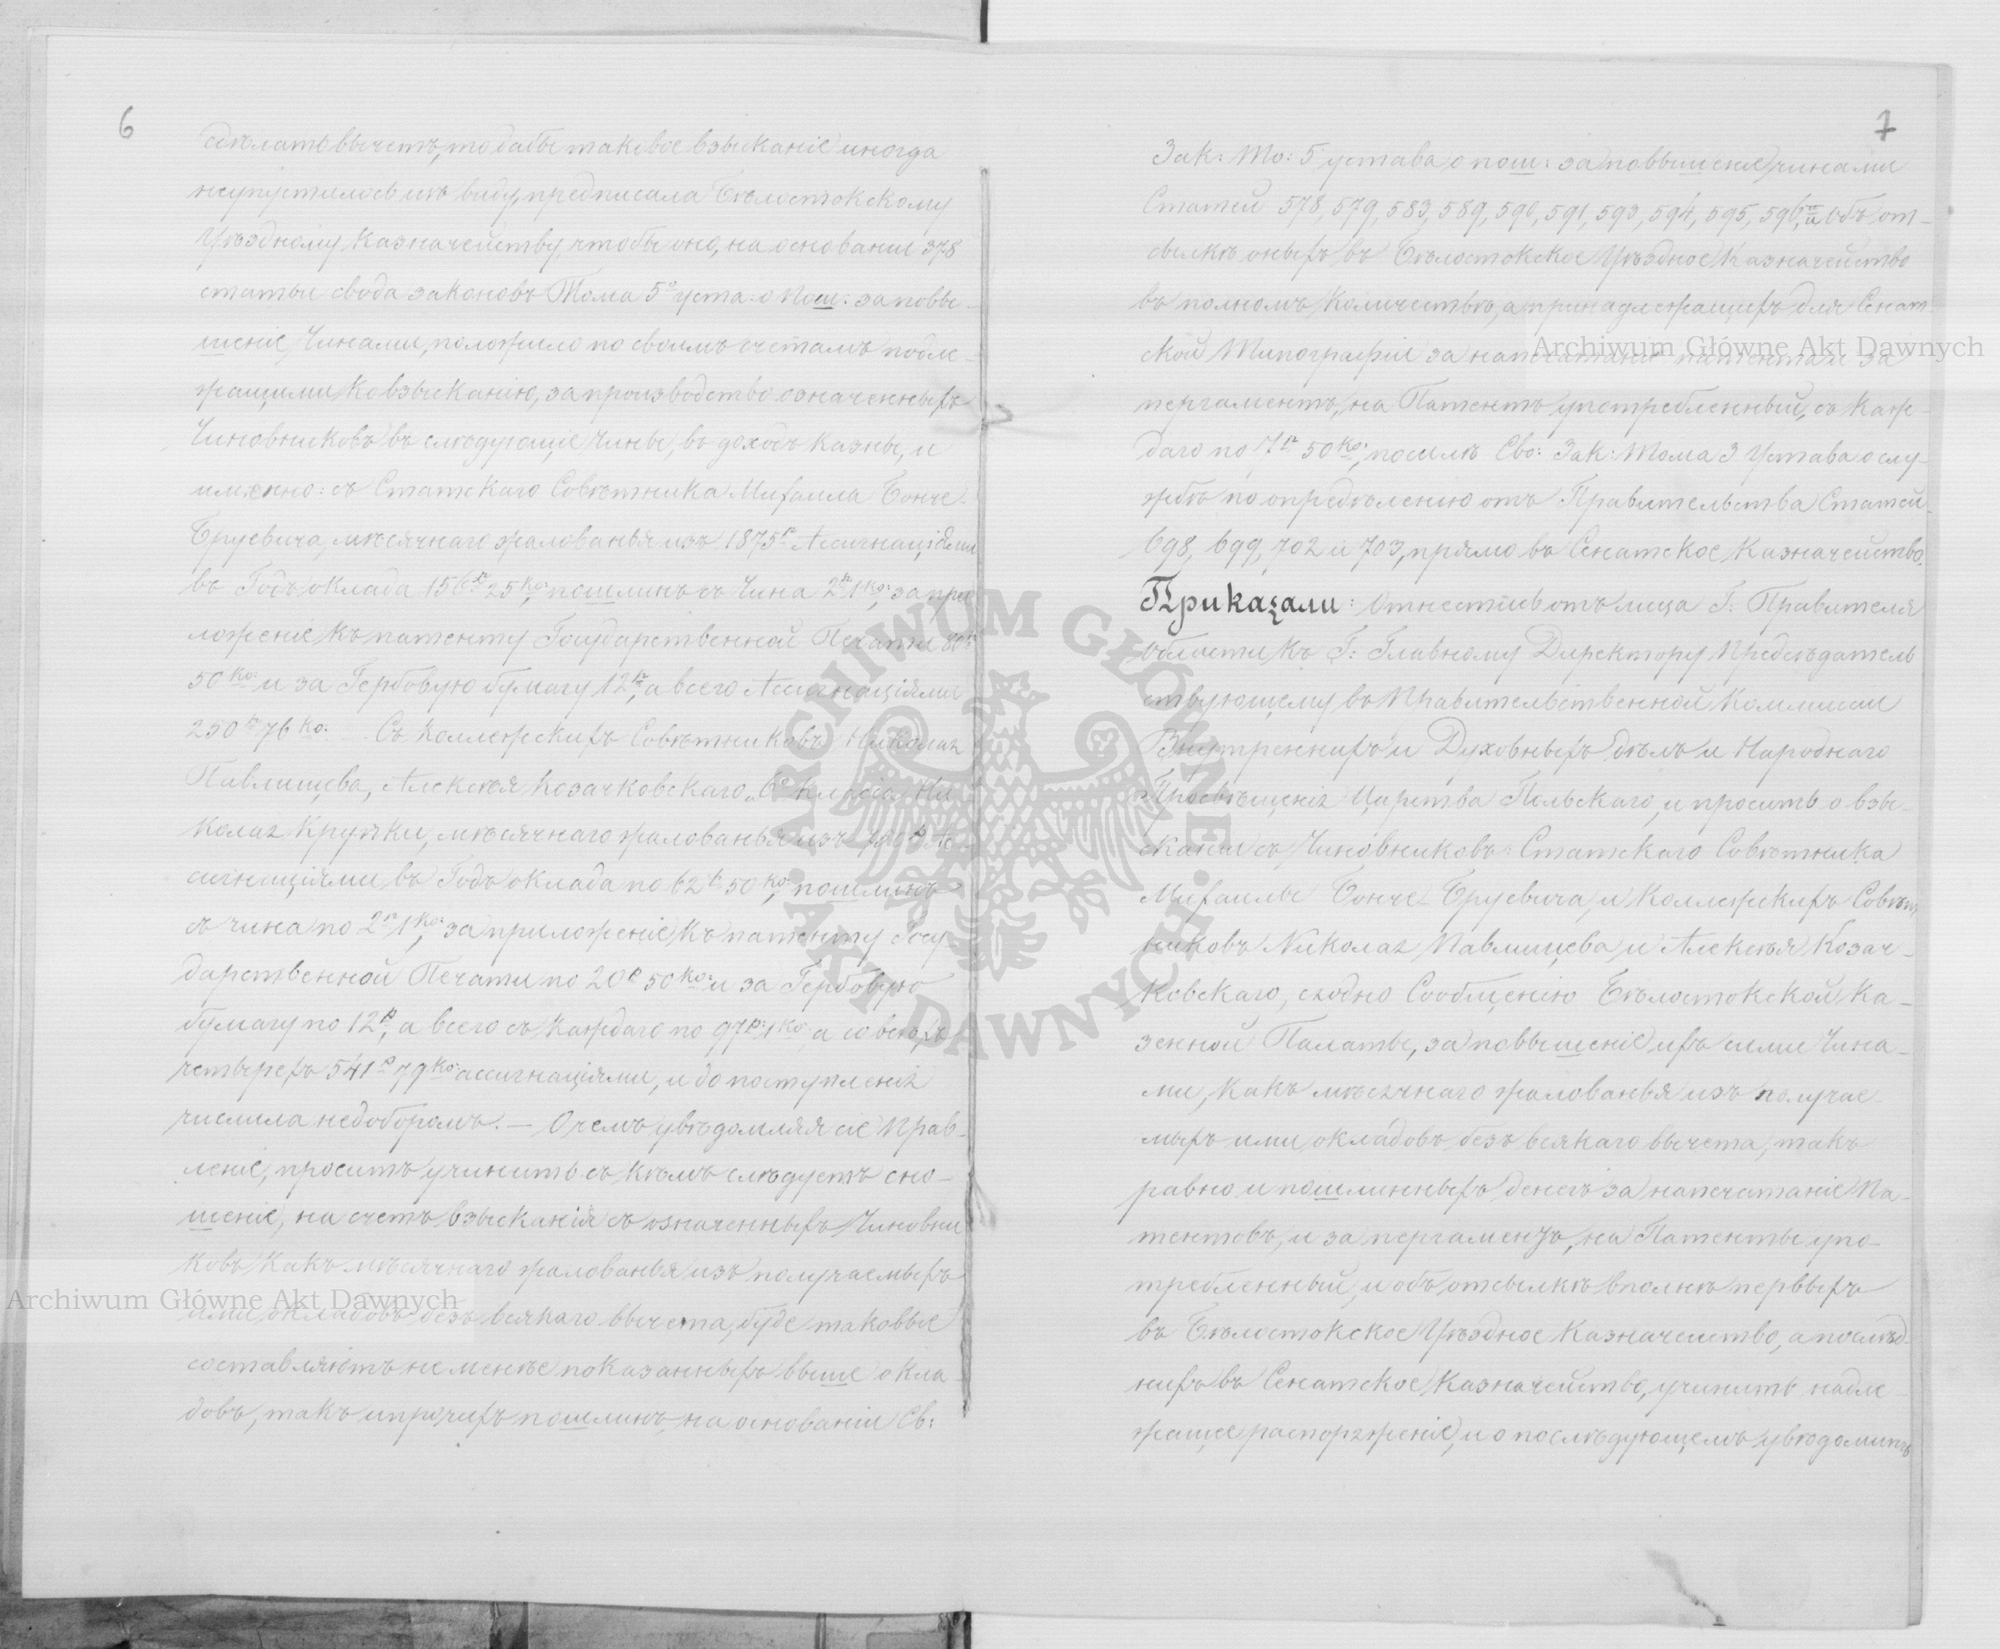 6
сдѣлать вычетъ, то дабы таковое взысканіе иногда
неупустилось изъ виду, предписала Бѣлостокскому
Уѣздному Казначейству, чтобы оно, на основаніи 378
статьи свода законовъ Тома 5º уста: о пош: за повы-
шеніе Чинами, положило по своимъ счетамъ подле-
жащими ко взысканію, за производство означенныхъ
Чиновниковъ въ слѣдующіе Чины, въ доходъ казны, и
именно: съ Статскаго Совѣтника Михаила Бонче-
Бруевича, мѣсячнаго жалованья изъ 1875 р Ассигнаціями
въ Годъ оклада 156 р 25 ко: пошлинъ съ Чина 2 р 1 ко: за при
ложеніе къ патенту Государственной Печати 80 р
50 ко: и за Гербовую бумагу 12 р, а всего Ассигнаціями
250 р 76 ко: Съ Коллежскихъ Совѣтниковъ Николая
Павлищева, Алексѣя Козачковскаго, 6º класса Ни
колая Крупки, мѣсячнаго жалованья изъ Ас-
сигнаціями въ Годъ оклада по 62 р 50 ко: пошлинъ
съ чина по 2 р 1 ко: за приложеніе къ патенту Госу-
дарственной Печати по 20 р 50 ко: и за Гербовую
бумагу по 12 р, а всего съ каждаго по 97 р: 1 ко: а со всѣхъ
четырехъ 541 р 79 ко: ассигнаціями, и до поступленія
числила недоборомъ. — О чемъ увѣдомляя сіе Прав-
леніе, проситъ учинить съ кѣмъ слѣдуетъ сно-
шеніе, на счетъ взысканія съ означенныхъ Чиновни
ковъ какъ мѣсячнаго жалованья изъ получаемыхъ
ими окладовъ безъ всякаго вычета, буде таковые
составляютъ не менѣе показанныхъ выше окла-
довъ, такъ и прочихъ пошлинъ, на основаніи Св:
7
Зак: То: 5 устава о пош: за повышеніе чинами
Статей 578, 579, 583, 589, 590, 591, 593, 594, 595, 596, и объ от-
сылкѣ оныхъ въ Бѣлостокское Уѣздное Казначейство
въ полномъ количествѣ, а принадлежащихъ для Сенат-
ской Типографіи за напечатаніе патента и за
пергаментъ, на Патентъ употребленный, съ каж-
даго по 7 р 50 ко: по силѣ Сво: Зак: Тома 3 Устава о слу-
жбѣ по опредѣленію отъ Правительства Статей
698, 699, 702 и 703, прямо въ Сенатское Казначейство.
Приказали: Отнестись отъ лица Г: Правителя
Области къ Г: Главному Директору Предсѣдатель
ствующему въ Правительственной Коммисіи
Внутреннихъ и Духовныхъ дѣлъ и Народнаго
Просвѣщенія Царства Польскаго, и просить о взы-
сканіи съ Чиновниковъ: Статскаго Совѣтника
Михаилы Бонче-Бруевича, и Коллежскихъ Совѣт
никовъ Николая Павлищева и Алексѣя Козач-
ковскаго, сходно Сообщенію Бѣлостокской Ка-
зенной Палаты, за повышеніе ихъ сими Чина-
ми, какъ мѣсячнаго жалованья изъ получае-
мыхъ ими окладовъ безъ всякаго вычета, такъ
равно и пошлинныхъ денегъ за напечатаніе Па-
тентовъ, и за пергаментъ, на Патенты упо-
требленный, и объ отсылкѣ вполнѣ первыхъ
въ Бѣлостокское Уѣздное Казначейство, а послѣд-
нихъ въ Сенатское Казначейство, учинить надле-
жащее распоряженіе, и о послѣдующемъ увѣдомить
Archiwum Główne Akt Dawnych
Archiwum Główne Akt Dawnych
ARCHIWUM GŁÓWNE AKT DAWNYCH